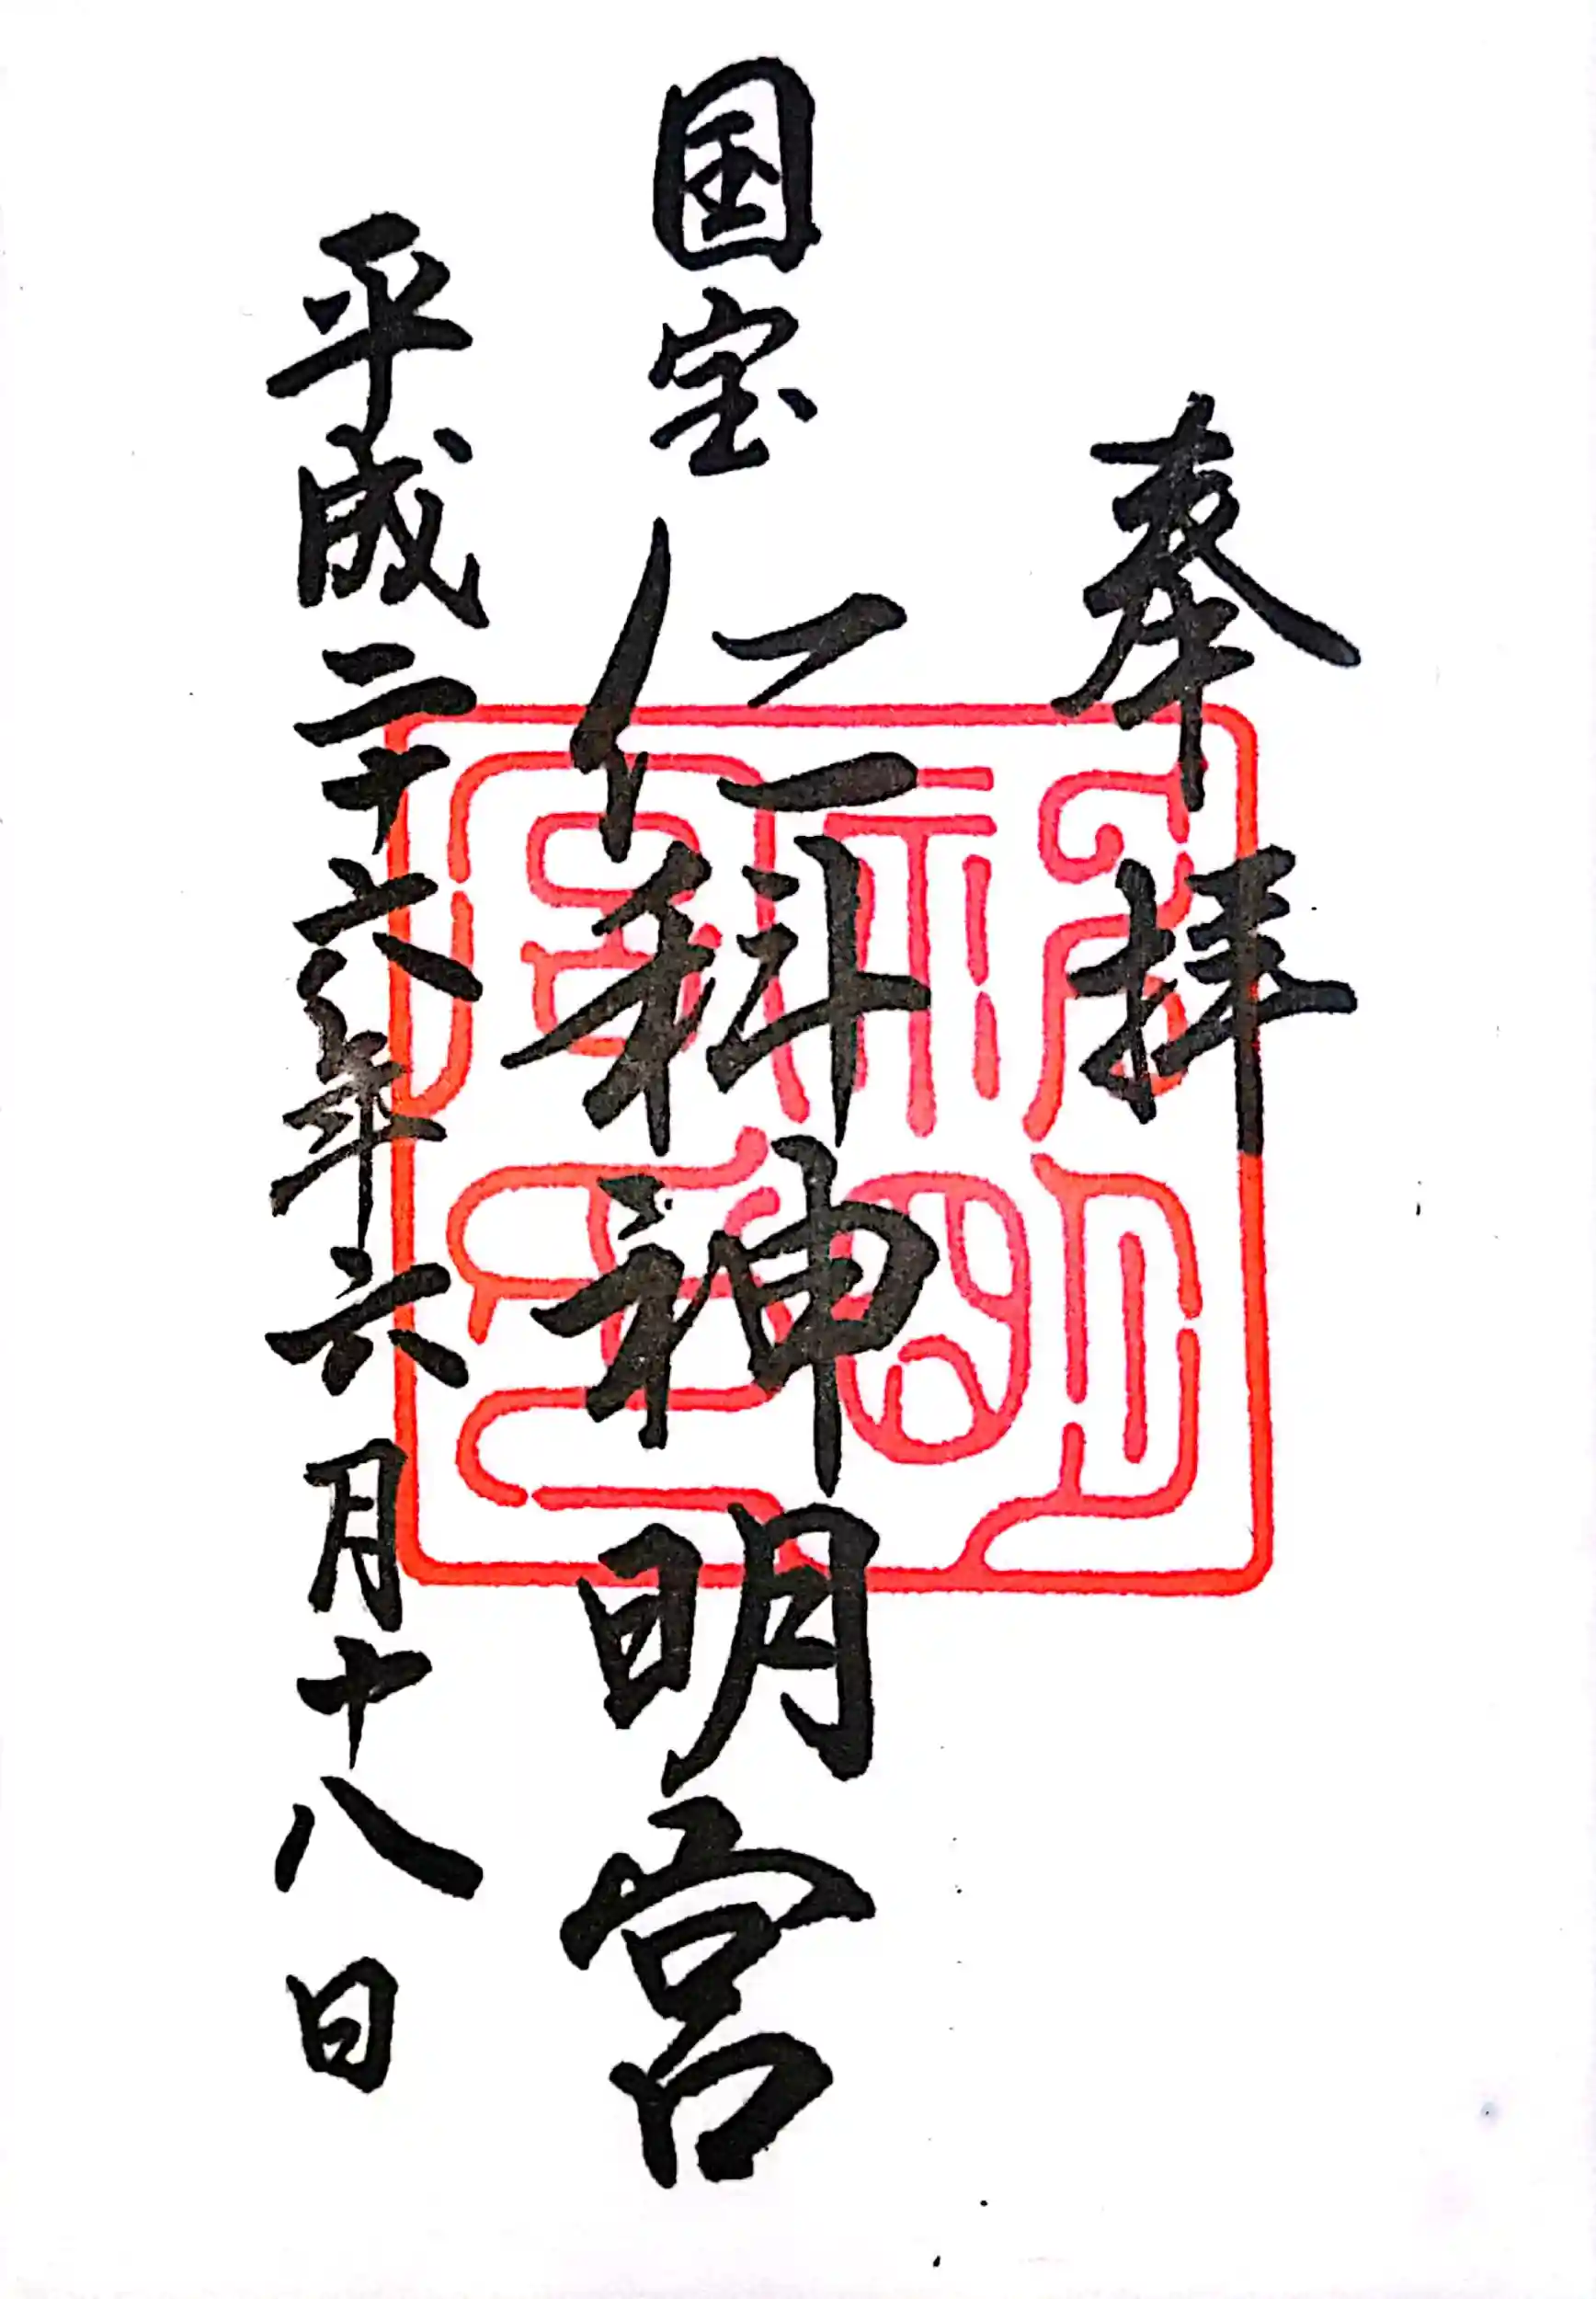 奉拝
国宝 仁科神明宮
平成二十六年六月十八日
神明
宮印